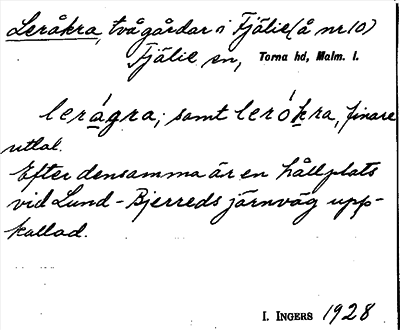 Leråkra, två gårdar i Fjälie (å nr 10)
Fjälie sn, Torna hd, Malm. l.
lerágra; samt lerókra, finare
uttal.
Efter densamma är en hållplats
vid Lund-Bjerreds järnväg upp-
kallad.
I. INGERS 1928